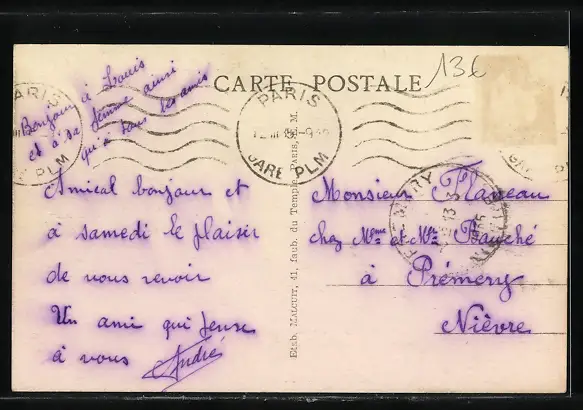 Bonjour à Louis
et à sa femme ainsi
qu'à tous les amis
CARTE POSTALE
13€
PARIS
GARE PLM
PARIS
GARE PLM
Amical bonjour et
à samedi le plaisir
de vous revoir
Un ami qui pense
à vous André
Etab. MALCUIT, 41, faub. du Temple, PARIS
Monsieur Flaneau
chez Mme et Mr Fauché
à Prémery
Nièvre